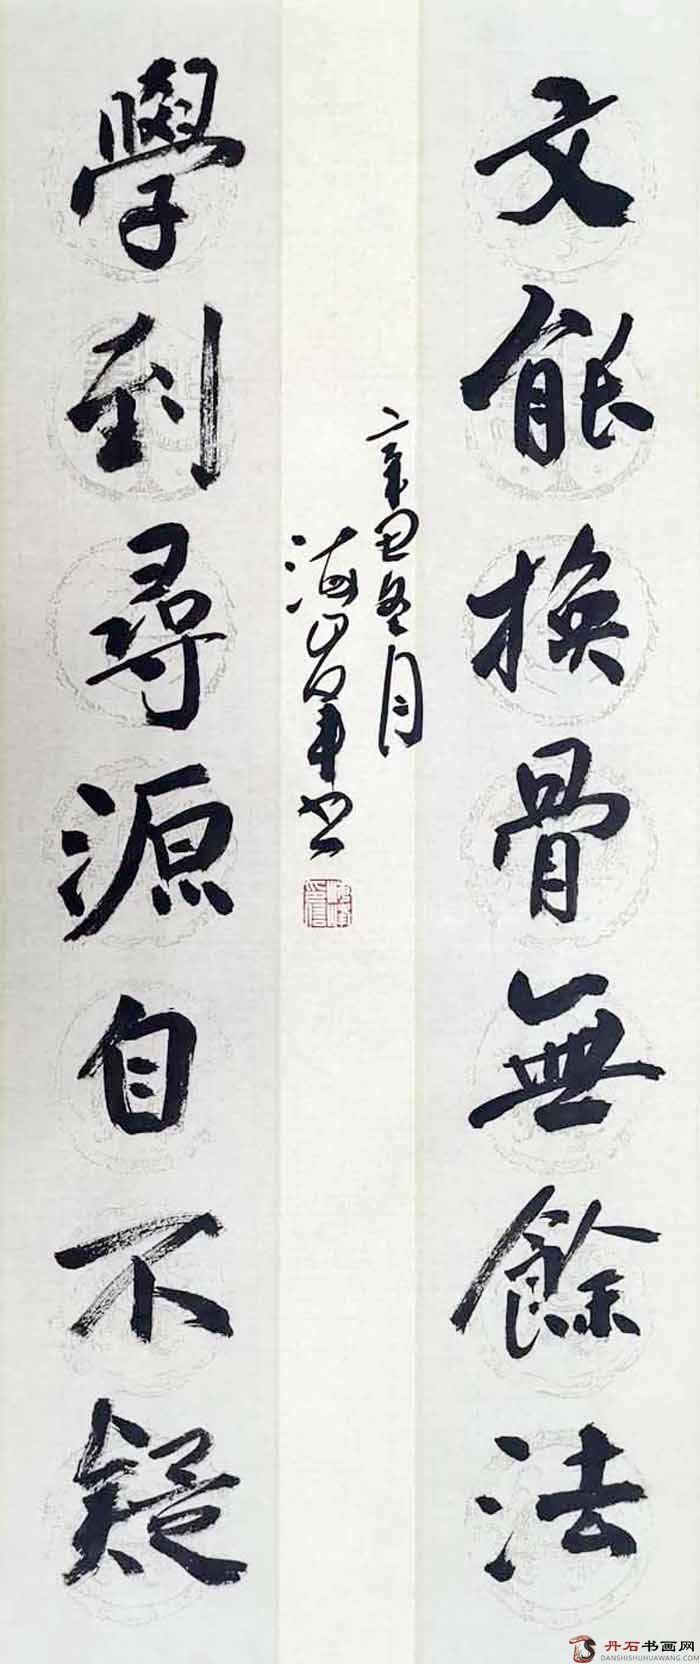 文能換骨無餘法
學到尋源自不疑
辛丑冬月
丹石书画网
DANSHISHUHUAWANG.COM